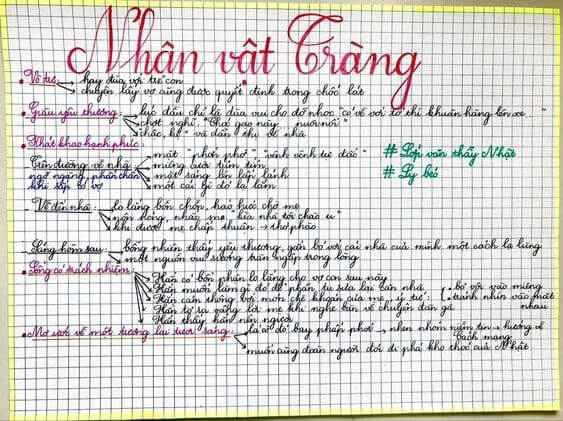 Nhân vật Tràng
• Vô tư: hay đùa với trẻ con
chuyện lấy vợ cũng được quyết định trong chốc lát
• Giàu yêu thương: lúc đầu chỉ là đùa vui cho đỡ nhọc "có về với tớ thì khuân hàng lên xe..."
chợt nghĩ: "Thóc gạo này nuôi nổi"
"chậc, kệ" và dẫn thị về nhà
• Khát khao hạnh phúc:
Trên đường về nhà mặt "phớn phở", "vênh vênh tự đắc"
ngỡ ngàng, phấn chấn miệng cười tủm tỉm
khi sắp có vợ mắt sáng lên lấp lánh
một cái gì đó lạ lắm
# Lớp văn thầy Nhật
# Ly béo
Về đến nhà: lo lắng bồn chồn, háo hức chờ mẹ
nôn nóng, nhấp mẹ "kìa nhà tôi chào u"
khi được mẹ chấp thuận → thở phào
Sáng hôm sau: bỗng nhiên thấy yêu thương, gắn bó với cái nhà của mình một cách lạ lùng
một nguồn vui sướng tràn ngập trong lòng
• Sống có trách nhiệm: Hắn có bổn phận lo lắng cho vợ con sau này
Hắn muốn làm gì đó để phần tu sửa lại căn nhà
Hắn cảm thông với món chè khoán của mẹ, ý tứ: bỏ vội vào miệng
tránh nhìn vào mặt nhau
Hắn tự sà vâng lời mẹ khi nghe bàn về chuyện đan gà
Hắn thấy hắn nên người
• Mơ ước về một tương lai tươi sáng: lá cờ đỏ bay phấp phới → nhen nhóm niềm tin → hướng về cách mạng
muốn cùng đoàn người đói đi phá kho thóc của Nhật